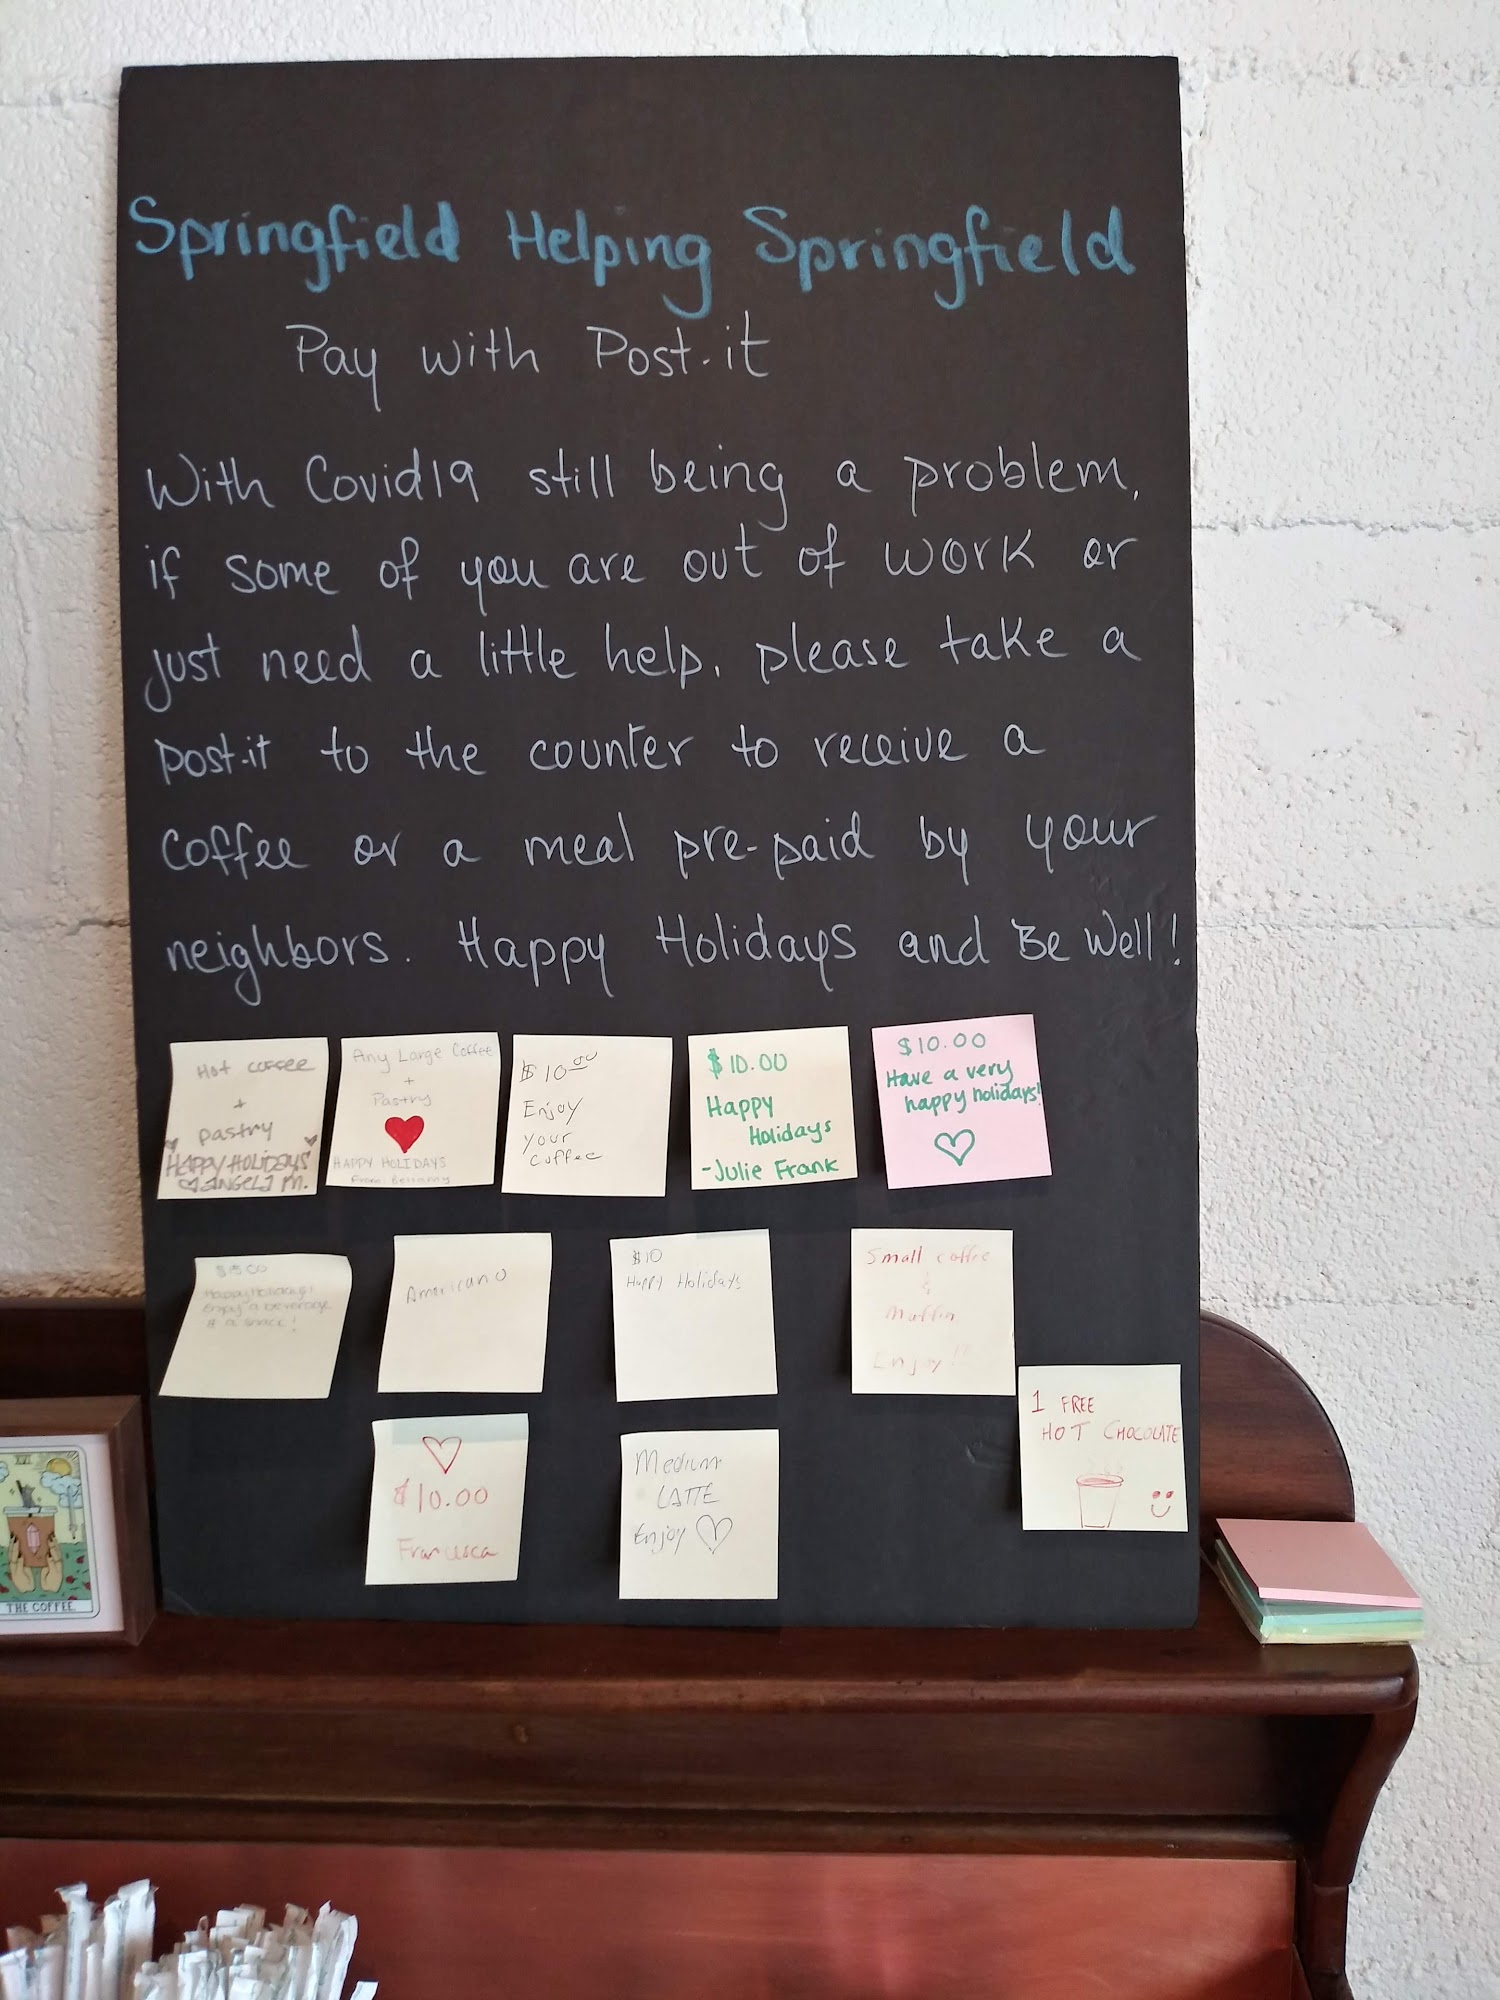 Springfield Helping Springfield
Pay with Post-it
With Covid19 still being a problem,
if some of you are out of work or
just need a little help, please take a
post-it to the counter to receive a
coffee or a meal pre-paid by your
neighbors. Happy Holidays and Be Well!
Hot coffee
+
pastry
HAPPY HOLIDAYS
ANGELA M.
Any Large Coffee
+
Pastry
HAPPY HOLIDAYS
From:
$10.00
Enjoy
your
coffee
$10.00
Happy
Holidays
-Julie Frank
$10.00
Have a very
happy holidays!
Happy Holidays!
Enjoy a beverage
& a snack!
Americano
$10
Happy Holidays
Small coffee
&
Muffin
Enjoy!!
1 FREE
HOT CHOCOLATE
$10.00
Francesca
Medium
LATTE
Enjoy
XVI
THE COFFEE